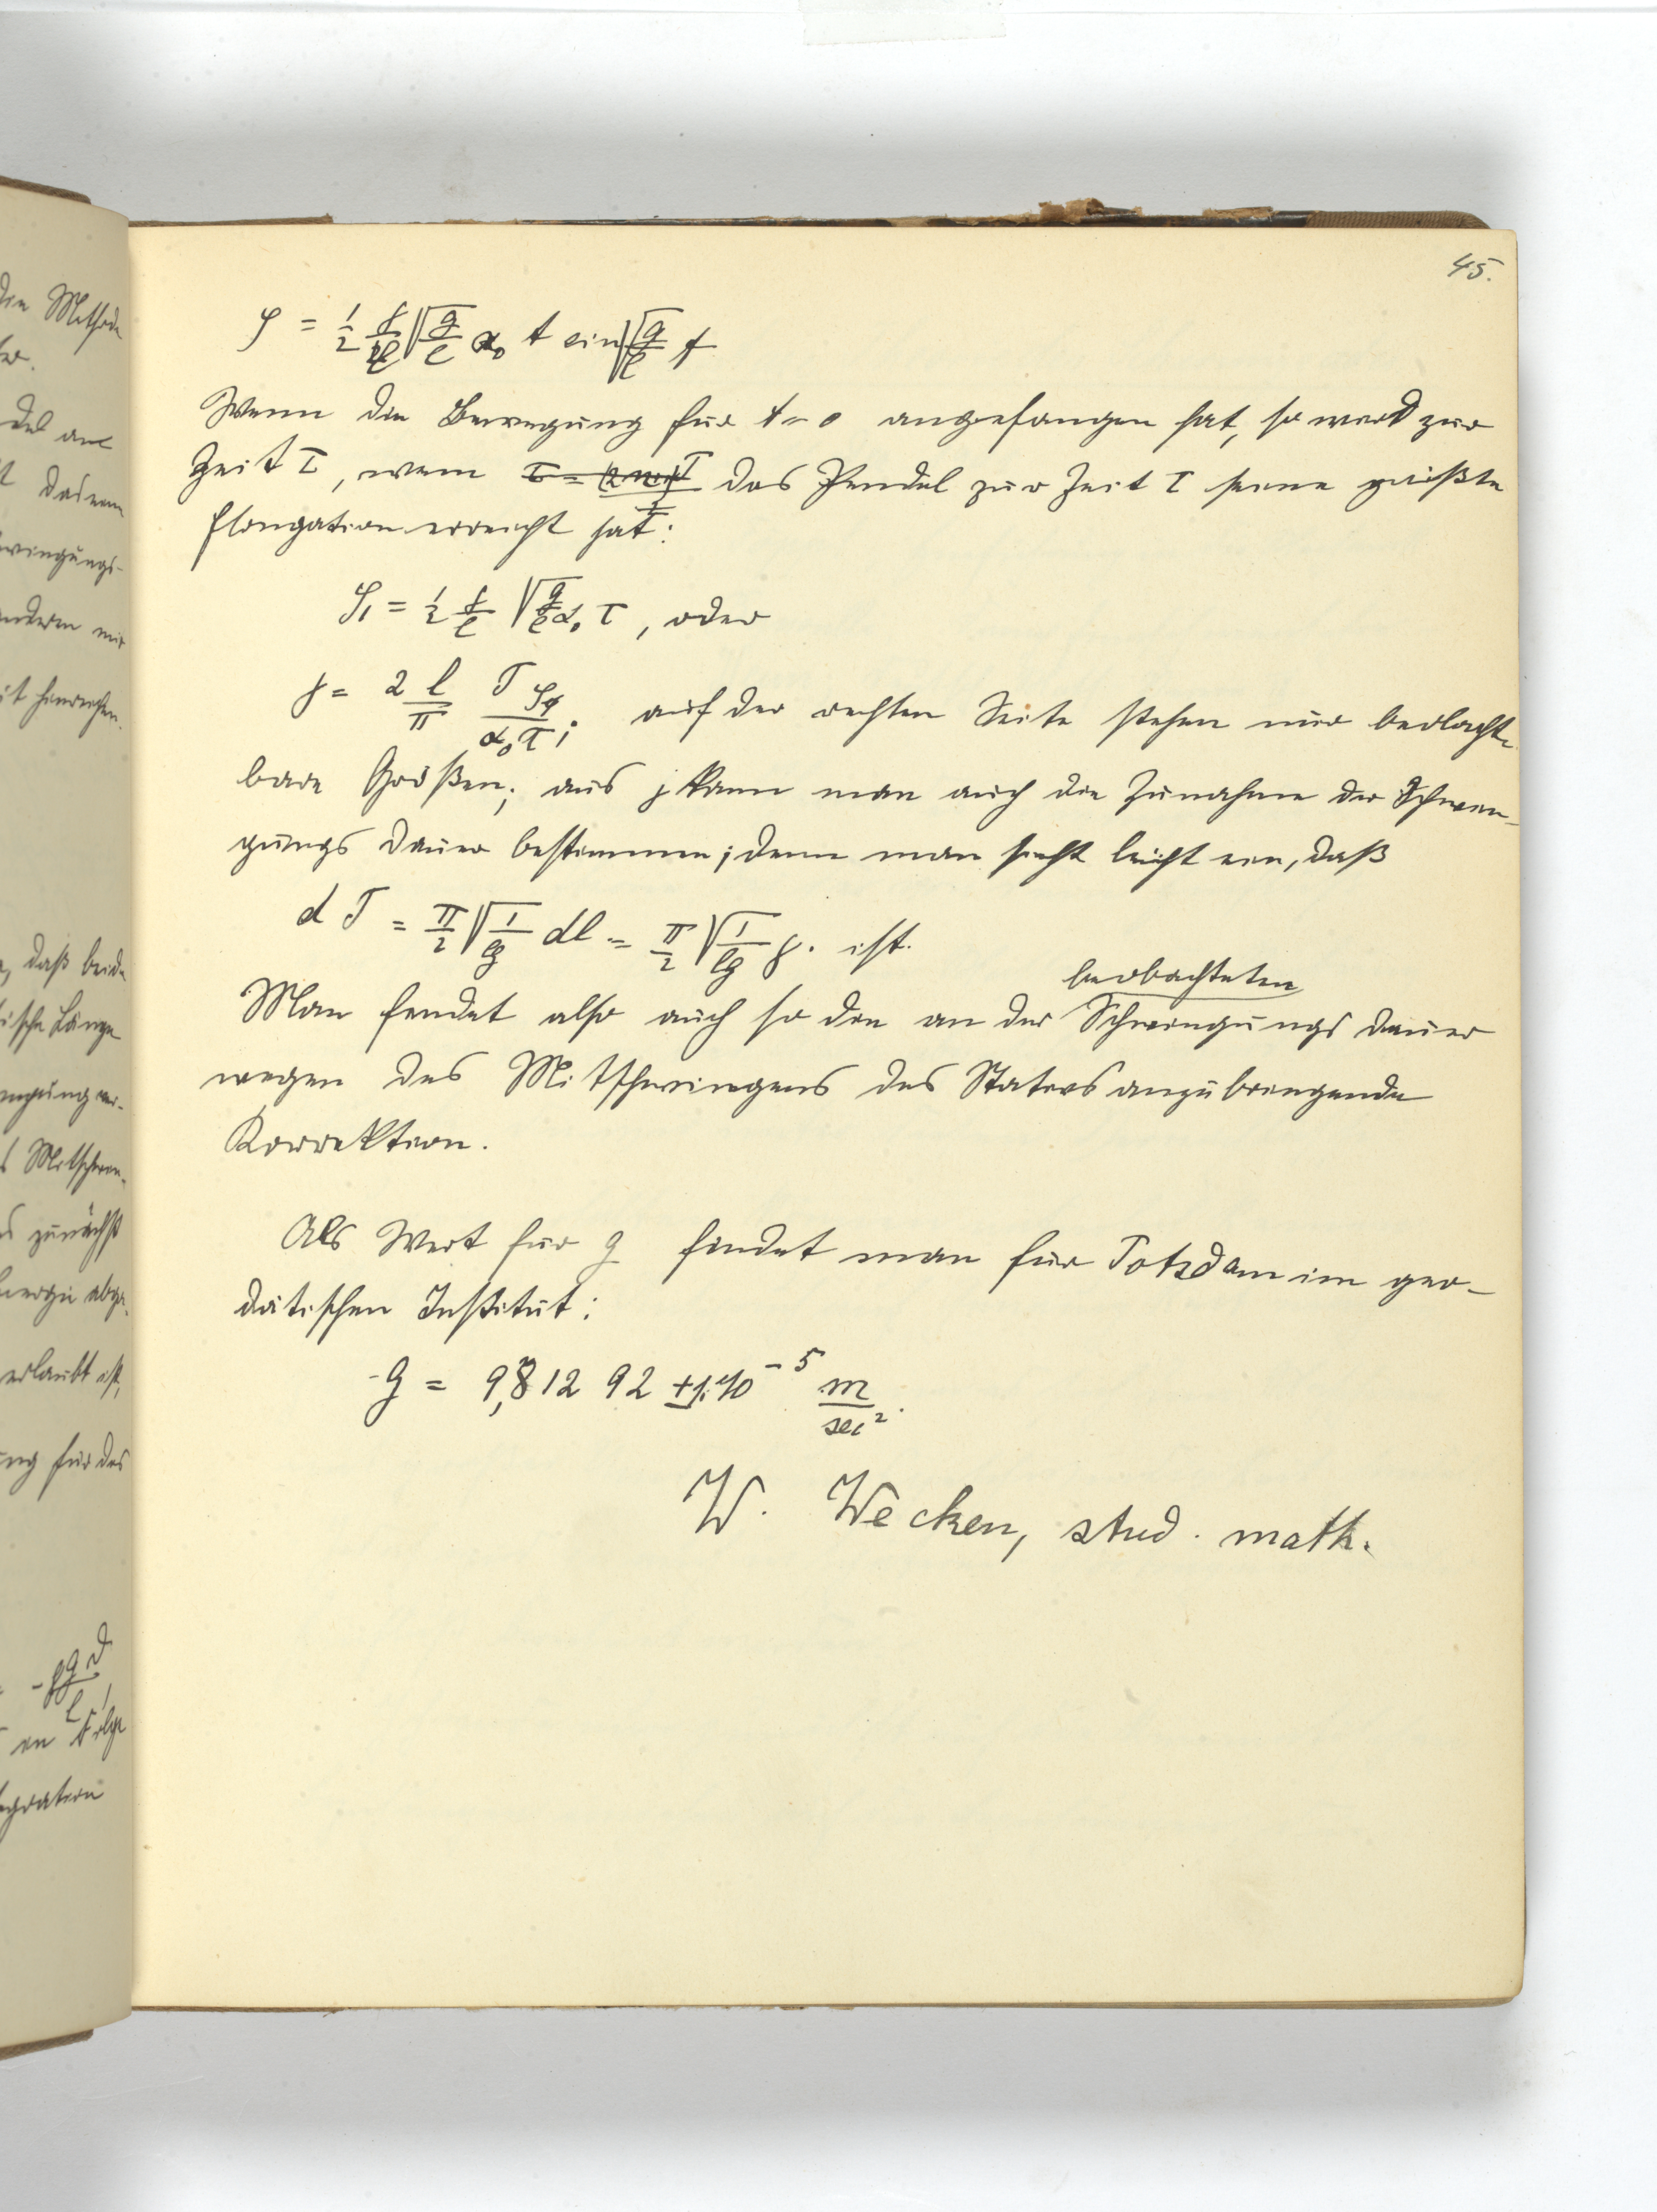 45.
φ = 1/2 γ/l √g/l α₀ t sin √g/l t
Wenn die Bewegung für t = 0 angefangen hat, so wird zur
Zeit τ, wenn das Pendel zur Zeit τ seine größte
Elongation erreicht hat:
φ₁ = 1/2 γ/l √g/l α₀ τ, oder
γ = 2 l/π T φ₁/α₀ τ; auf der rechten Seite stehen nur beobacht-
bare Größen; aus γ kann man auch die Zunahme der Schwin-
gungsdauer bestimmen; denn man sieht leicht ein, daß
dT = π/2 √1/lg dl = π/2 √1/lg γ. ist.
beobachteten
Man findet also auch so die an der Schwingungsdauer
wegen des Mitschwingens des Stativs anzubringende
Korrektion.
Als Wert für g findet man für Potsdam im geo-
dätischen Institut:
g = 9,81292 ± 1·10⁻⁵ m/sec².
W. Wecken, stud. math.